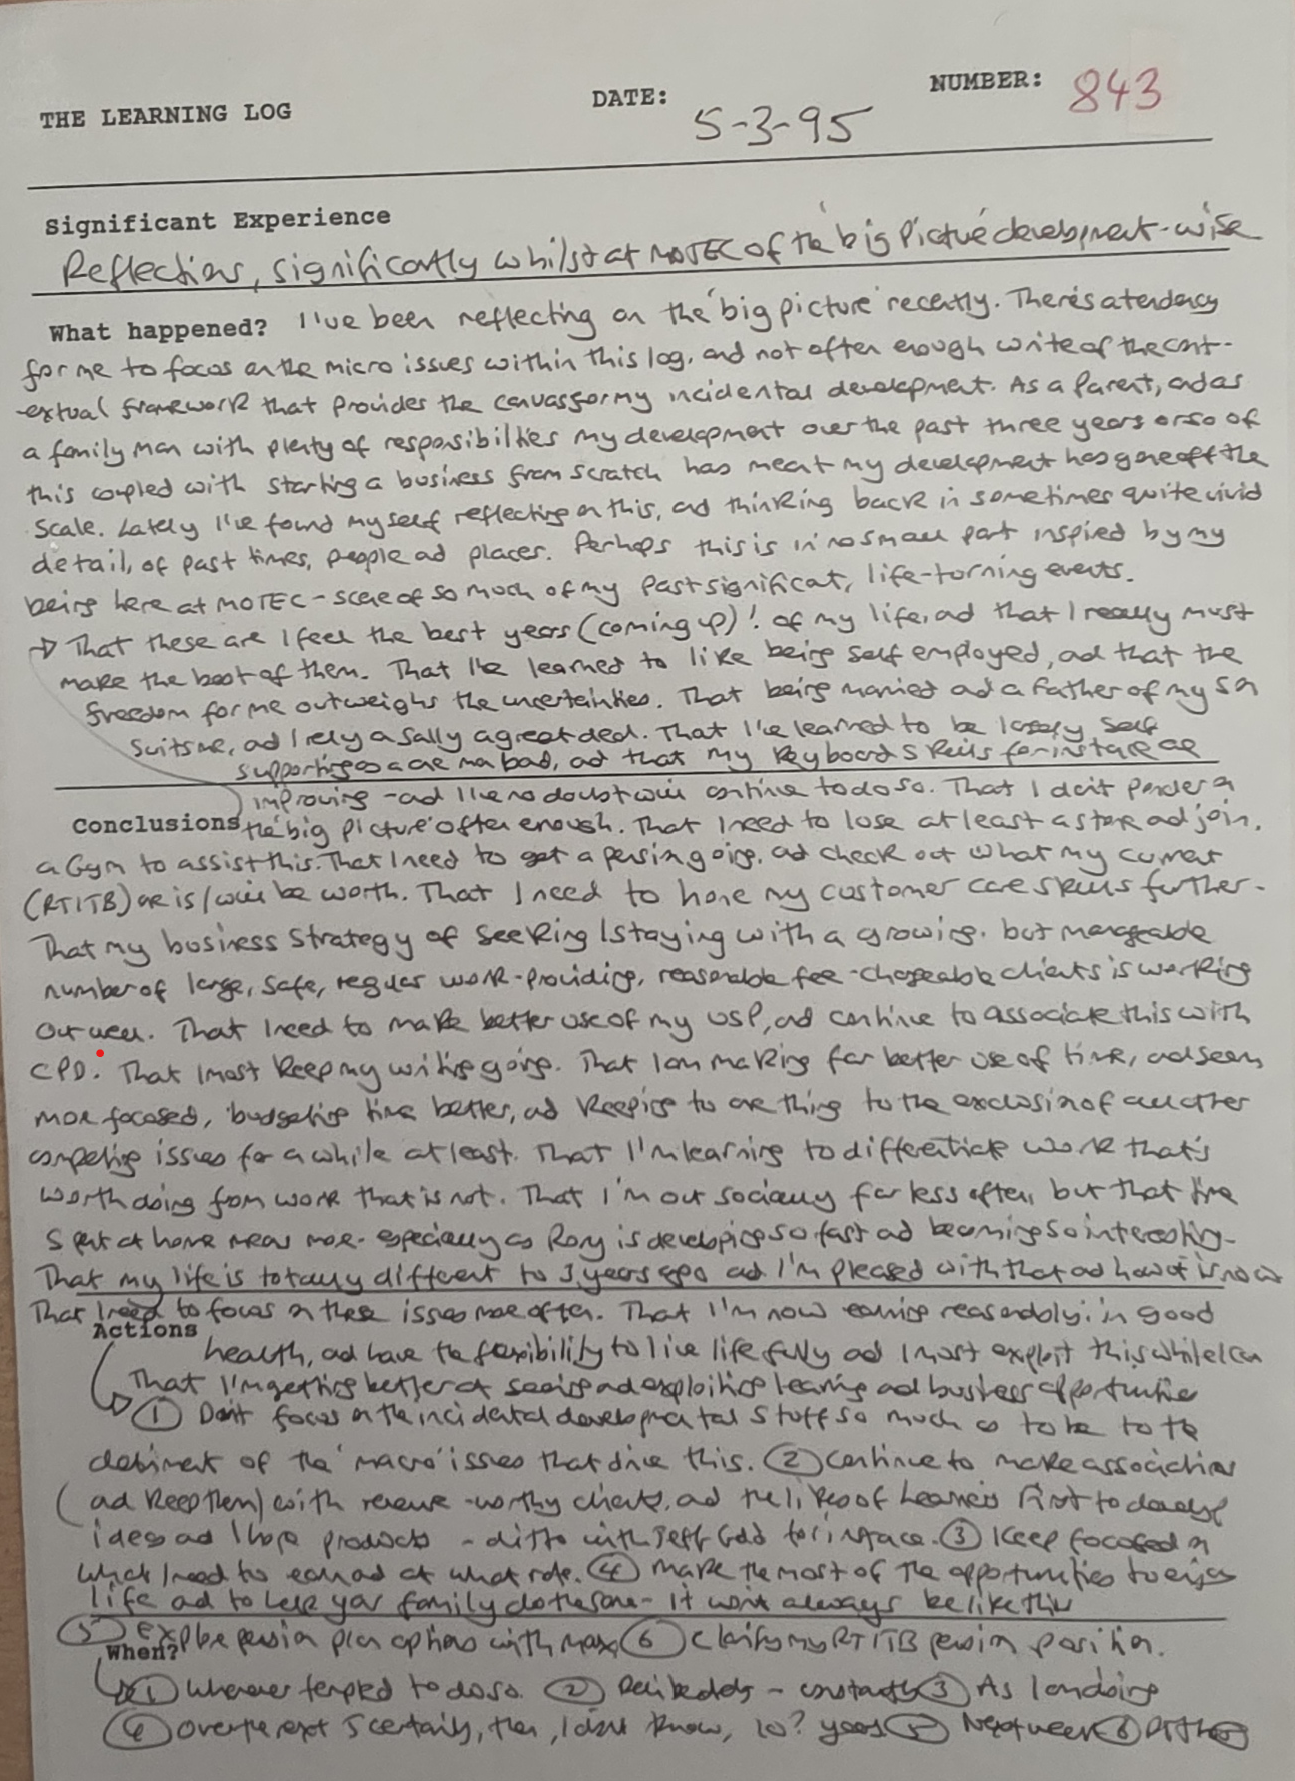 THE LEARNING LOG DATE: 5-3-95 NUMBER: 843
Significant Experience
Reflections, significantly whilst at MOTEC of the 'big Picture' development-wise
What happened? I've been reflecting on the 'big picture' recently. There's a tendency
for me to focus on the micro issues within this log, and not often enough write of the cont-
-extual framework that provides the canvass for my incidental development. As a parent, and as
a family man with plenty of responsibilities my development over the past three years or so of
this coupled with starting a business from scratch has meant my development has gone off the
scale. Lately I've found myself reflecting on this, and thinking back in sometimes quite vivid
detail, of past times, people and places. Perhaps this is in no small part inspired by my
being here at MOTEC - scene of so much of my past significant, life-turning events.
→ That these are I feel the best years (coming up)! of my life, and that I really must
make the best of them. That I've learned to like being self employed, and that the
freedom for me outweighs the uncertainties. That being married and a father of my son
suits me, and I rely on Sally a great deal. That I've learned to be largely self
supporting as a one man band, and that my keyboard skills for instance are
improving - and I've no doubt will continue to do so. That I don't ponder on
Conclusions the 'big picture' often enough. That I need to lose at least a stone and join
a Gym to assist this. That I need to get a pension going, and check out what my current
(RTITB) one is/will be worth. That I need to hone my customer care skills further.
That my business strategy of seeking/staying with a growing, but manageable
number of large, safe, regular work-providing, reasonable fee-chargeable clients is working
out well. That I need to make better use of my USP, and continue to associate this with
CPD. That I must keep my writing going. That I am making far better use of time, and seem
more focused, budgeting time better, and keeping to one thing to the exclusion of all other
competing issues for a while at least. That I'm learning to differentiate work that's
worth doing from work that is not. That I'm out socially far less often, but that time
spent at home means more - especially as Rory is developing so fast and becoming so interesting.
That my life is totally different to 3 years ago and I'm pleased with that and how it is now
That I need to focus on these issues more often. That I'm now earning reasonably, in good
Actions
health, and have the flexibility to live life fully and I must exploit this while I can
That I'm getting better at seeing and exploiting learning and business opportunities
① Don't focus on the incidental developmental stuff so much as to be to the
detriment of the 'macro' issues that drive this. ② Continue to make associations
(and keep them) with revenue-worthy clients, and the likes of Learners First to develop
ideas and I hope products - ditto with Jeff for instance. ③ Keep focused on
what I need to earn and at what rate. ④ Make the most of the opportunities to enjoy
life and to help your family do the same - it won't always be like this
⑤ Explore pension plan options with Max ⑥ Clarify my RTITB pension position.
When?
① Whenever tempted to do so. ② Deliberately - constantly ③ As I am doing
④ Over the next 5 certainly, then, I don't know, 10? years ⑤ Next week ⑥